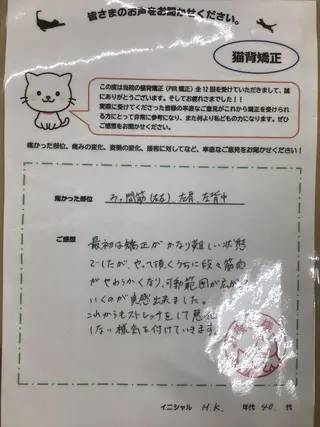 皆さまのお声をお聞かせください。
猫背矯正
この度は当院の猫背矯正（PKR矯正）全12回を受けていただきまして、誠
にありがとうございます。そしてお疲れさまでした！！
実際に受けてくださった皆様の率直なご意見がこれから矯正を受けられ
る方にとって非常に参考になり、また何より私どもの力になります。ぜひ
ご感想をお聞かせください。
痛かった部位、痛みの変化、姿勢の変化、接客に対してなど、率直なご意見をお聞かせください！
痛かった部位 間筋(左右)、左肩、左背中
ご感想
最初は矯正がかなり難しい状態
でしたが、やって頂くうちに段々筋肉
がやわらかくなり、可動範囲が広がって
いくのが実感出来ました。
これからもストレッチをして悪化
しない様気を付けていきます。
イニシャル H.K. 年代 40 代